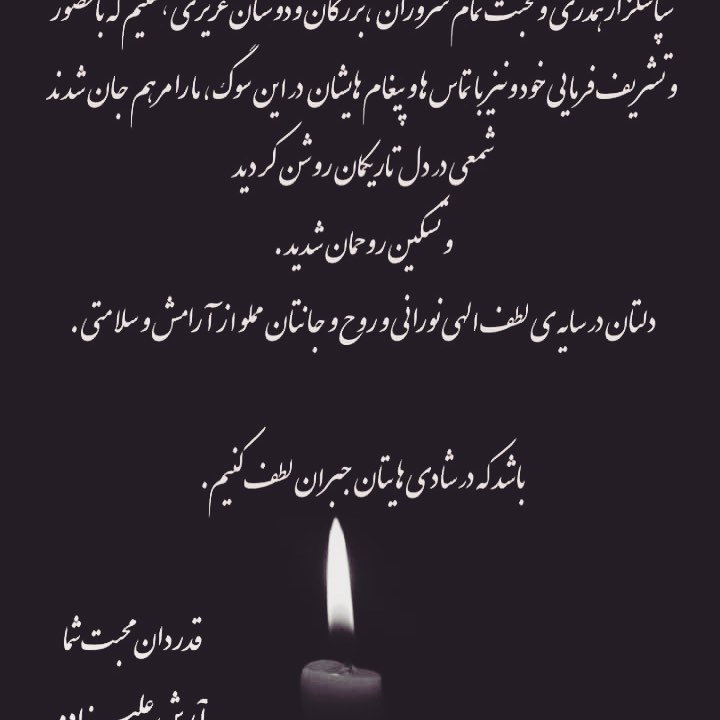 سپاسگزار همدردی و محبت تمام سروران ،بزرگان و دوستان عزیزی، هستیم که با حضور
و تشریف فرمایی خود و نیز با تماس ها و پیغام هایشان در این سوگ، ما را مرهم جان شدند
شمعی در دل تاریکمان روشن کردید
و تسکین روحمان شدید.
دلتان در سایه ی لطف الهی نورانی و روح و جانتان مملو از آرامش و سلامتی.
باشد که در شادی هایتان جبران لطف کنیم.
قدردان محبت شما
آرش علیزاده